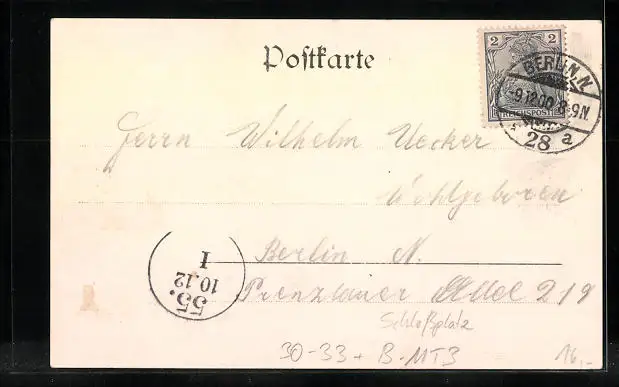 Postkarte
2 2
REICHSPOST
BERLIN.N.
-9.12.00.8-9N
28 a
Herrn Wilhelm Uecker
Wohlgeboren
Berlin N.
Prenzlauer Allee 219
Schloßplatz
55.
10.12
I
30-33 + B-MT3
16,-